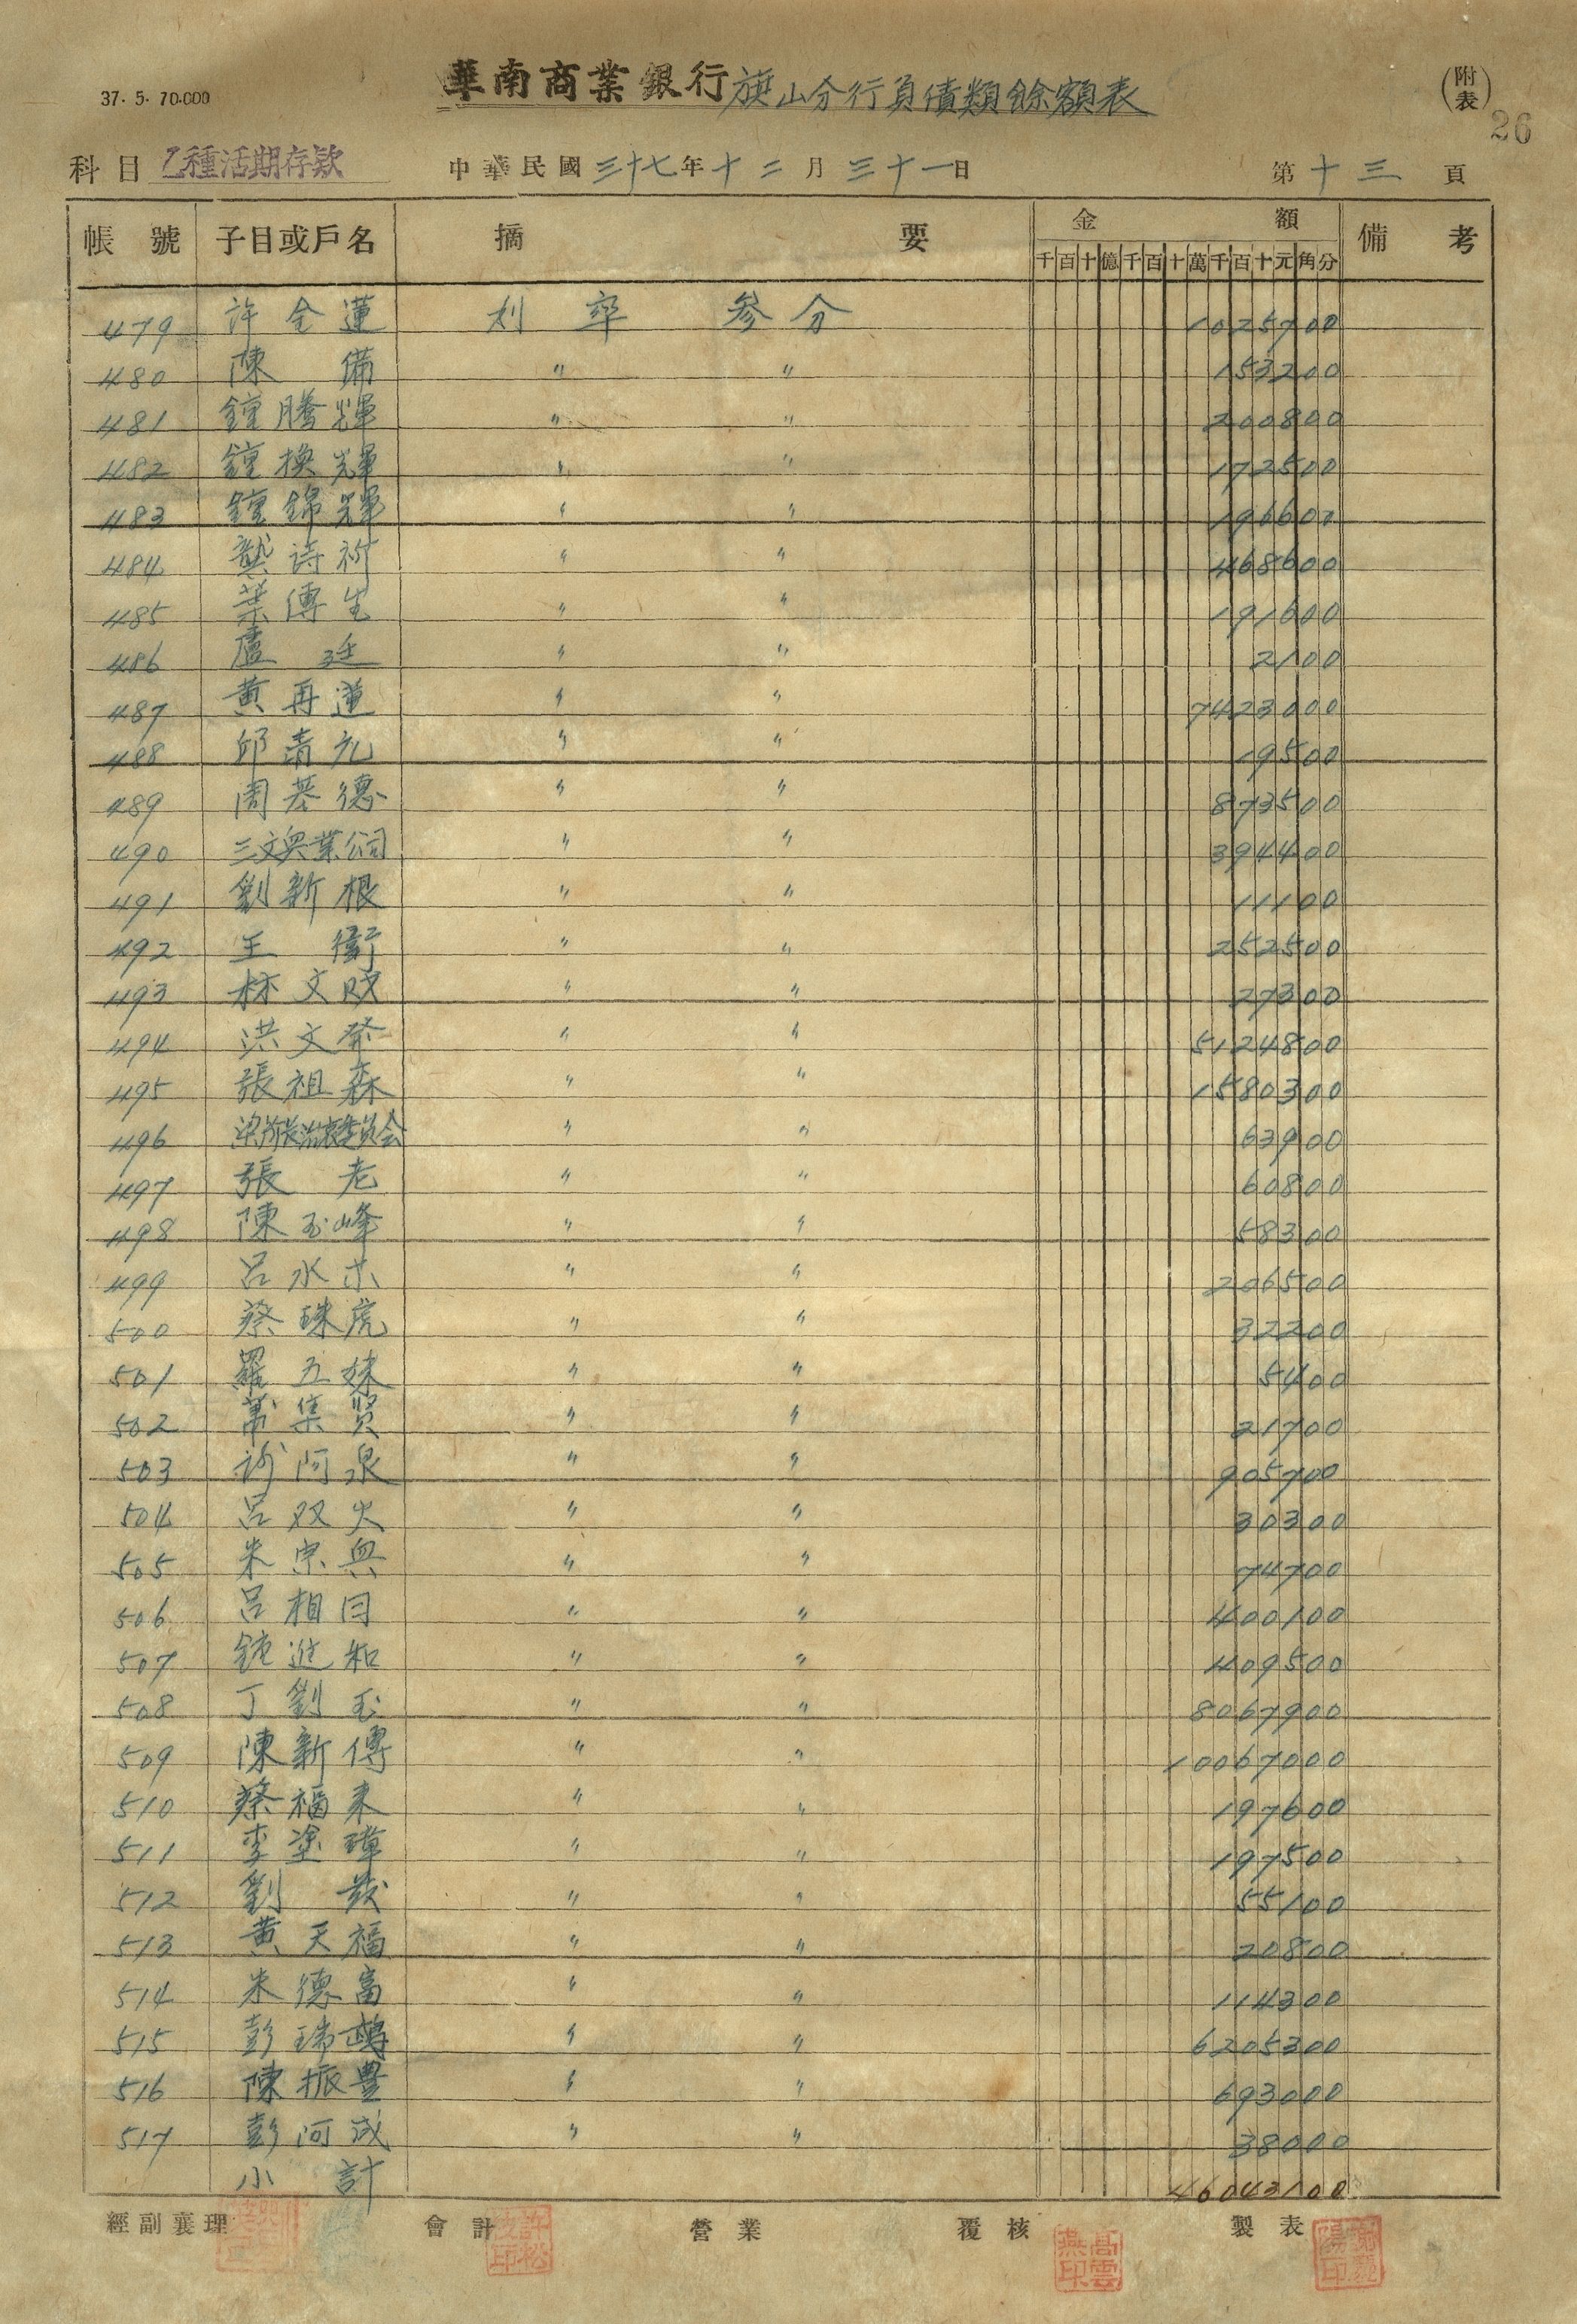 37. 5. 70.000
華南商業銀行旗山分行負債類餘額表
(附表)
26
科目 乙種活期存款 中華民國三十七年十二月三十一日 第十三頁
帳號 子目或戶名 摘要 金額 備考
千百十億千百十萬千百十元角分
479 許金蓮 利率 參分 1025700
480 陳備 〃 〃 153200
481 鍾騰輝 〃 〃 200800
482 鍾換輝 〃 〃 172500
483 鍾錦輝 〃 〃 196600
484 龔詩祈 〃 〃 468600
485 葉傳生 〃 〃 191600
486 盧廷 〃 〃 2100
487 黃再蓮 〃 〃 7423000
488 邱清元 〃 〃 19500
489 周基德 〃 〃 873500
490 三文興業公司 〃 〃 394400
491 劉新根 〃 〃 11100
492 王衛 〃 〃 252500
493 林文財 〃 〃 27300
494 洪文發 〃 〃 5124800
495 張祖森 〃 〃 1580300
496 委員会 〃 〃 63900
497 張老 〃 〃 60800
498 陳玉峰 〃 〃 58300
499 呂水木 〃 〃 206500
500 蔡珠虎 〃 〃 32200
501 羅五妹 〃 〃 5400
502 集賢 〃 〃 21700
503 許阿泉 〃 〃 905700
504 呂双火 〃 〃 30300
505 朱宗興 〃 〃 74700
506 呂相同 〃 〃 400100
507 鍾進和 〃 〃 409500
508 丁劉玉 〃 〃 8067900
509 陳新傳 〃 〃 10067000
510 蔡福来 〃 〃 197600
511 李塗璋 〃 〃 197500
512 劉發 〃 〃 55100
513 黃天福 〃 〃 20800
514 朱德富 〃 〃 114300
515 彭瑞鵡 〃 〃 6205300
516 陳振豊 〃 〃 693000
517 彭阿成 〃 〃 38000
小計 46043100
經副襄理 會計 營業 覆核 製表
許松茂印
高雲燕印